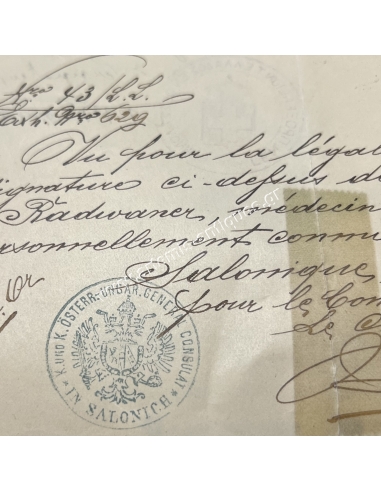 Nro 43/L.L.
Exh. Nro 629
Vu pour la légal
signature ci-dessus d
Radwaner, médecin
ersonnellement connu
Salonique
pour le Con
Le
K. UND K. ÖSTERR.-UNGAR. GENERAL CONSULAT
IN SALONICH